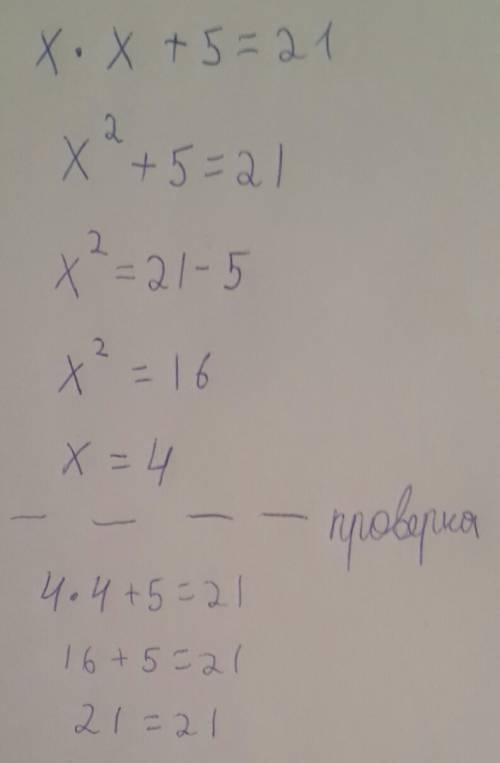 x · x + 5 = 21
x² + 5 = 21
x² = 21 - 5
x² = 16
x = 4
— — — — проверка
4 · 4 + 5 = 21
16 + 5 = 21
21 = 21